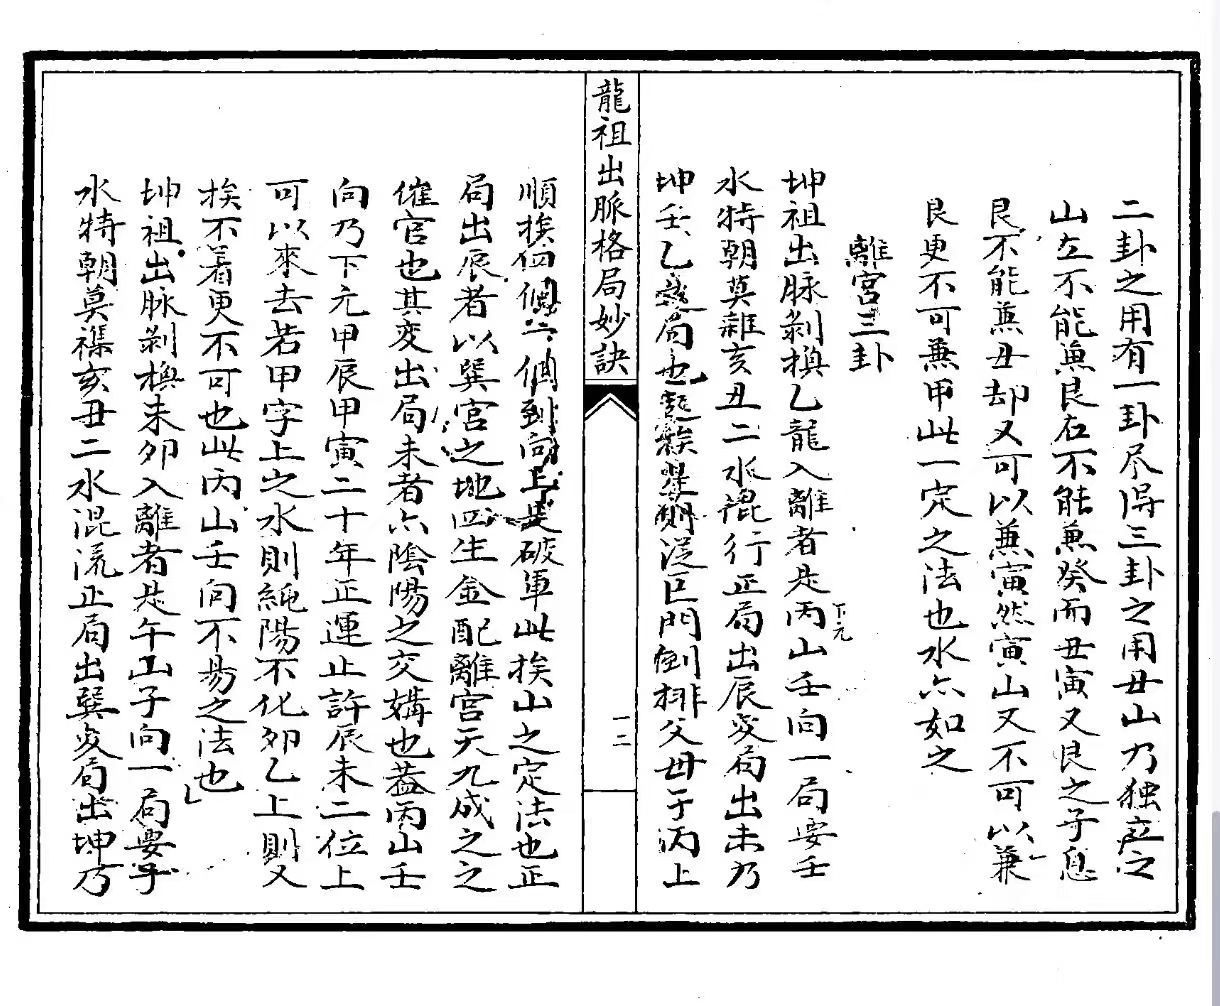 二卦之用有一卦尽得三卦之用丑山乃独立之
山左不能兼艮右不能兼癸而丑寅又艮之子息
艮不能兼丑却又可以兼寅然寅山又不可以兼
艮更不可兼甲此一定之法也水亦如之
離宮三卦
坤祖出脈剥換乙龍入離者是丙山壬向一局要壬
下元
水特朝莫雜亥丑二水混行正局出辰変局出未乃
坤壬乙局也挨從巨門倒排父母于丙上
龍祖出脈格局妙訣
一二
順挨個個到向上是破軍此挨山之定法也正
局出辰者以巽宮之地四生金配離宮天九成之之
催官也其变出局未者亦陰陽之交媾也蓋丙山壬
向乃下元甲辰甲寅二十年正運止許辰未二位上
可以來去若甲字上之水則純陽不化卯乙上則又
挨不着更不可也此丙山壬向不易之法也
坤祖出脈剥換未卯入離者是午山子向一局要子
水特朝莫襍亥丑二水混流正局出巽变局出坤乃